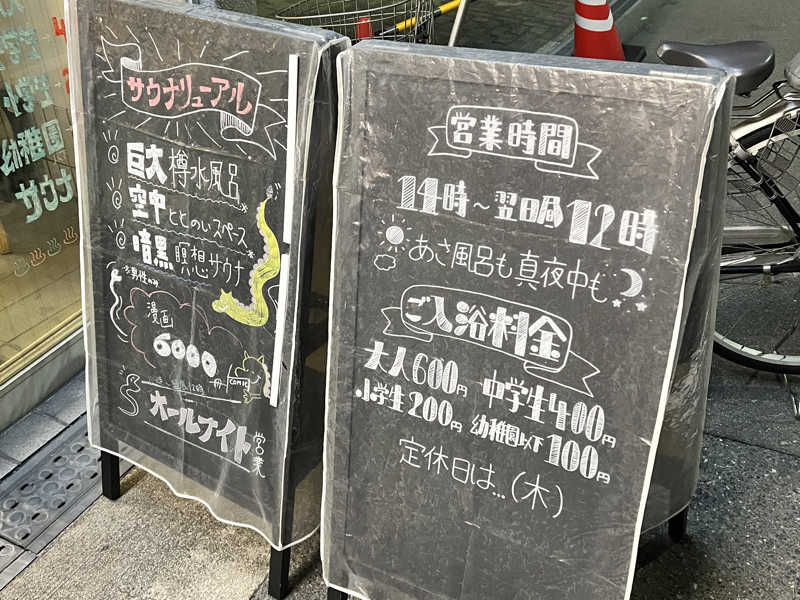 小学生
幼稚園
サウナ
サウナリューアル
巨大樽水風呂
空中ととのいスペース
暗黒瞑想サウナ
※男性のみ
漫画
6000
冊
COMIC
オールナイト営業
営業時間
14時〜翌日昼12時
あさ風呂も真夜中も
ご入浴料金
大人600円 中学生400円
小学生200円 幼稚園以下100円
定休日は…(木)